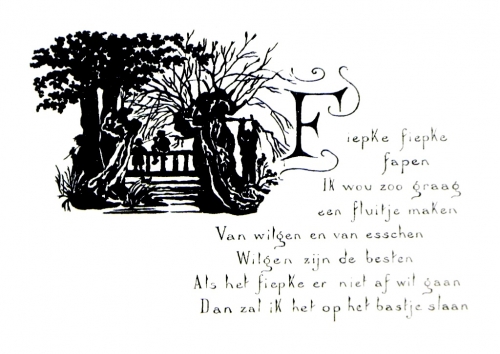 Fiepke fiepke
fapen
Ik wou zoo graag
een fluitje maken
Van wilgen en van esschen
Wilgen zijn de besten
Als het fiepke er niet af wil gaan
Dan zal ik het op het bastje slaan